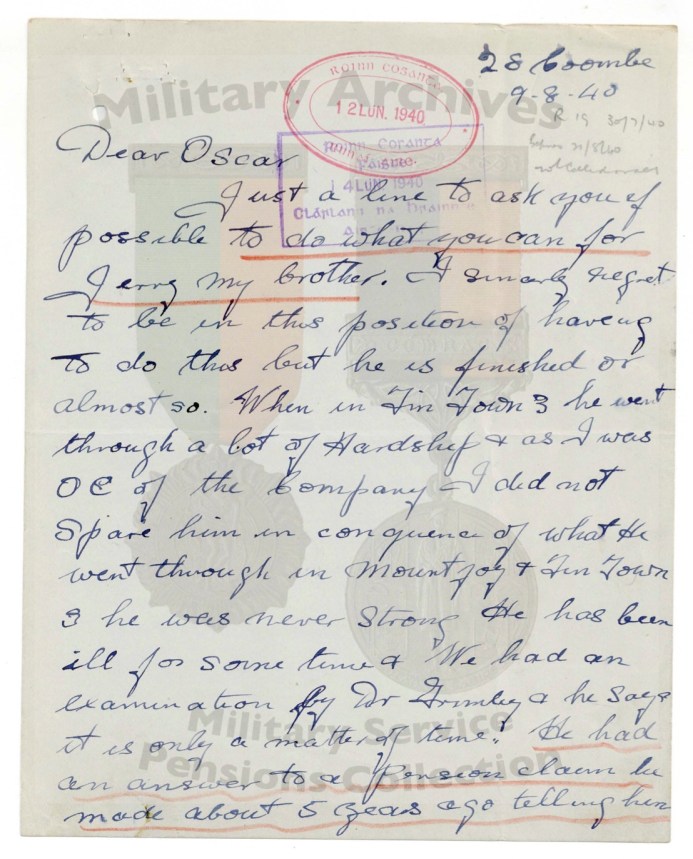 28 Coombe
9-8-40
R 19 30/7/40
Military Archives
ROINN COSANTA
12 LUN. 1940
Roinn Cosanta
14 LUN 1940
Dear Oscar
Just a line to ask you if
possible to do what you can for
Jerry my brother. I sincerly regret
to be in this position of having
to do this but he is finished or
almost so. When in Tin Town 3 he went
through a lot of Hardship & as I was
OC of the Company I did not
Spare him in conquence of what He
went through in Mountjoy & Tin Town
3 he was never strong He has been
ill for some time & We had an
examination by Dr & he says
it is only a matter of time. He had
an answer to a Pension claim he
made about 5 years ago telling him
Military Service
Pensions Collection